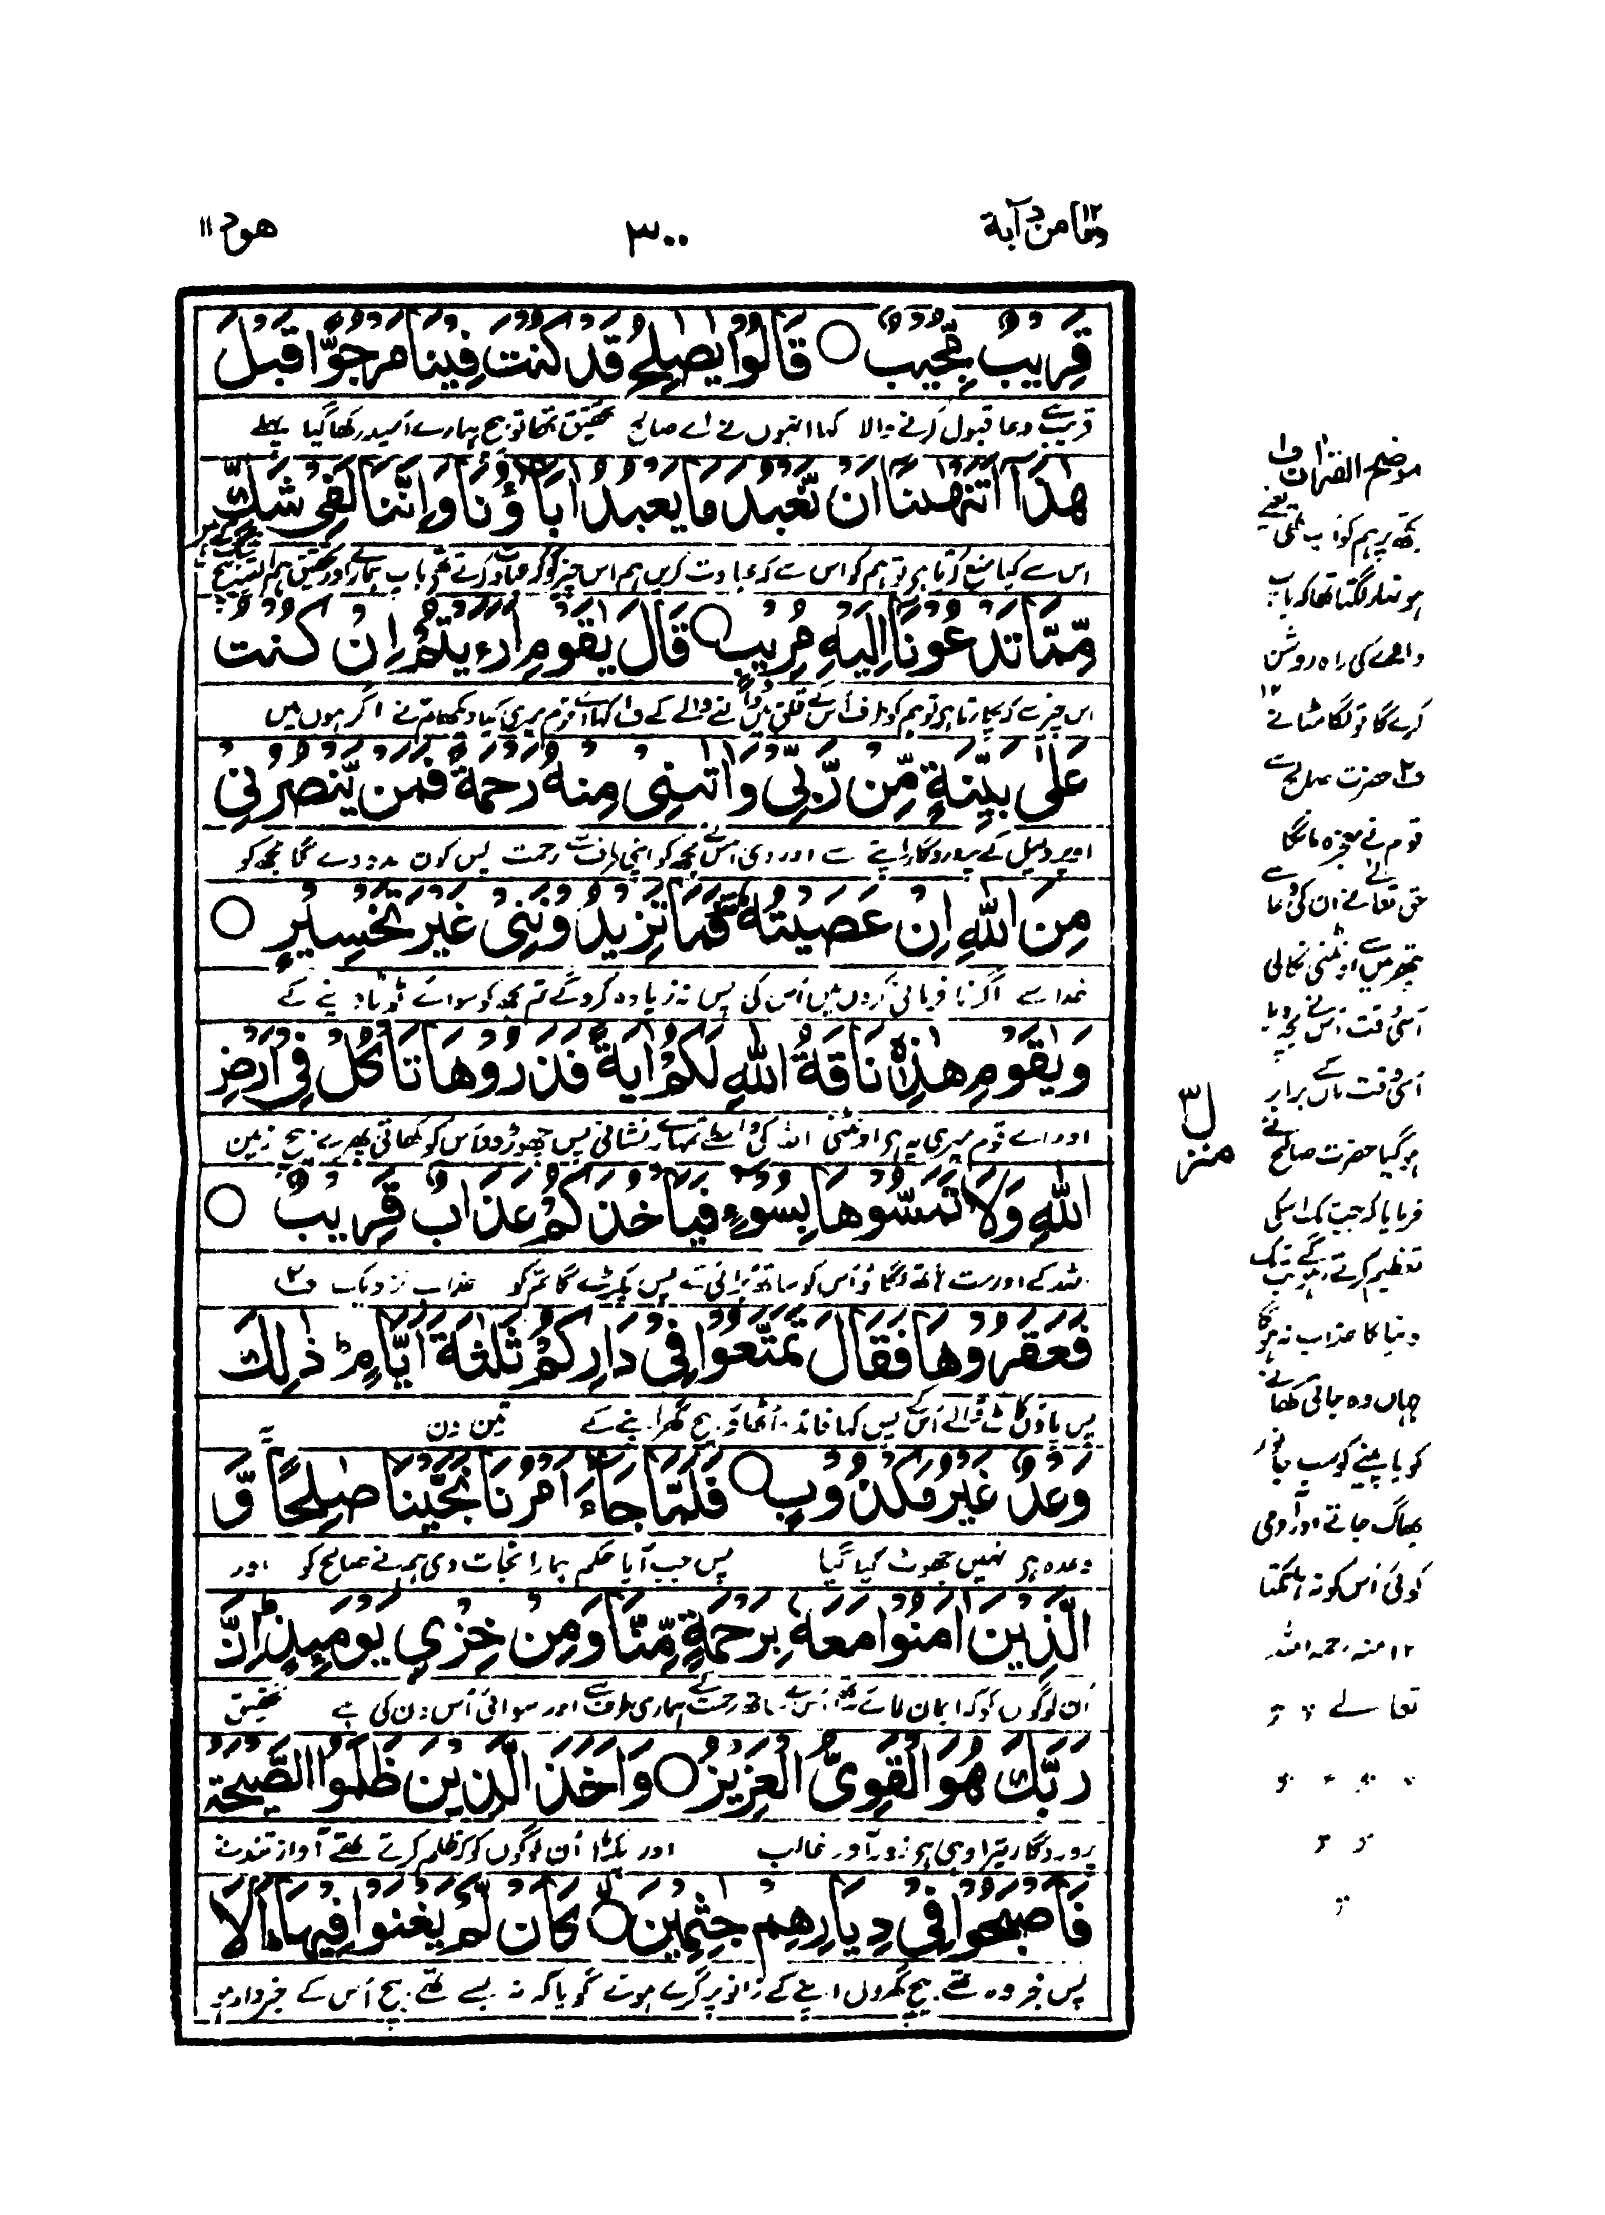 وما من دآبة ١٢
٣٠٠
هود ١١
قَرِيْبٌ مُّجِيْبٌ ○ قَالُوْا يٰصٰلِحُ قَدْ كُنْتَ فِيْنَا مَرْجُوًّا قَبْلَ
قریب ہے دعا قبول کرنے والا کہا انہوں نے اے صالح تحقیق تھا تو بیچ ہمارے اُمید رکھا گیا پہلے
هٰذَآ اَتَنْهٰىنَآ اَنْ نَّعْبُدَ مَا يَعْبُدُ اٰبَآؤُنَا وَاِنَّنَا لَفِيْ شَكٍّ
اس سے کیا منع کرتا ہو تو ہم کو اس سے کہ عبادت کریں ہم اس چیز کو کہ عبادت کرتے تھے باپ ہمارے اور تحقیق ہم البتہ بیچ
مِّمَّا تَدْعُوْنَآ اِلَيْهِ مُرِيْبٍ ○ قَالَ يٰقَوْمِ اَرَءَيْتُمْ اِنْ كُنْتُ
اس چیز سے کہ پکارتا ہو تو ہم کو طرف اُس کے قلق میں ڈالنے والے کے ف کہا اے قوم میری کیا دیکھا تم نے اگر ہوں میں
عَلٰى بَيِّنَةٍ مِّنْ رَّبِّيْ وَاٰتٰىنِيْ مِنْهُ رَحْمَةً فَمَنْ يَّنْصُرُنِيْ
اوپر دلیل کے پروردگار اپنے سے اور دی اس نے مجھ کو اپنی طرف سے رحمت پس کون مدد دے گا مجھ کو
مِنَ اللّٰهِ اِنْ عَصَيْتُهٗ فَمَا تَزِيْدُوْنَنِيْ غَيْرَ تَخْسِيْرٍ ○
خدا سے اگر نا فرمانی کروں میں اُس کی پس نہ زیادہ کرو گے تم مجھ کو سوائے ٹوٹا دینے کے
وَيٰقَوْمِ هٰذِهٖ نَاقَةُ اللّٰهِ لَكُمْ اٰيَةً فَذَرُوْهَا تَاْكُلْ فِيْٓ اَرْضِ
اور اے قوم میری یہ ہو اونٹنی اللہ کی واسطے تمہارے نشانی پس چھوڑ دو اُس کو کھاتی پھرے بیچ زمین
اللّٰهِ وَلَا تَمَسُّوْهَا بِسُوْٓءٍ فَيَاْخُذَكُمْ عَذَابٌ قَرِيْبٌ ○
اللہ کے اور مت ہاتھ لگاؤ اُس کو ساتھ بُرائی کے پس پکڑے گا تم کو عذاب نزدیک ف٢
فَعَقَرُوْهَا فَقَالَ تَمَتَّعُوْا فِيْ دَارِكُمْ ثَلٰثَةَ اَيَّامٍ ذٰلِكَ
پس پاؤں کاٹ ڈالے اُس کے پس کہا فائدہ اُٹھاؤ بیچ گھر اپنے کے تین دن یہ
وَعْدٌ غَيْرُ مَكْذُوْبٍ ○ فَلَمَّا جَآءَ اَمْرُنَا نَجَّيْنَا صٰلِحًا وَّ
وعدہ ہو نہیں جھوٹ کیا گیا پس جب آیا حکم ہمارا نجات دی ہم نے صالح کو اور
الَّذِيْنَ اٰمَنُوْا مَعَهٗ بِرَحْمَةٍ مِّنَّا وَمِنْ خِزْيِ يَوْمِئِذٍ اِنَّ
اُن لوگوں کو کہ ایمان لائے تھے ساتھ اُس کے ساتھ رحمت کے ہماری طرف سے اور رسوائی اُس دن کی سے تحقیق
رَبَّكَ هُوَ الْقَوِيُّ الْعَزِيْزُ ○ وَاَخَذَ الَّذِيْنَ ظَلَمُوا الصَّيْحَةُ
پروردگار تیرا وہی ہو زور آور غالب اور پکڑا اُن لوگوں کو کہ ظلم کرتے تھے آواز تند نے
فَاَصْبَحُوْا فِيْ دِيَارِهِمْ جٰثِمِيْنَ ○ كَاَنْ لَّمْ يَغْنَوْا فِيْهَا اَلَآ
پس فجر وہ تھے بیچ گھروں اپنے کے زانو پر گرے ہوئے گویا کہ نہ بسے تھے بیچ اُس کے خبردار ہو
منزل ٣
موضح القرآن ف١
یعنے
تجھ پر ہم کو اب تھی
ہونہار لگتا تھا کہ باپ
دادے کی راہ روشن
کرے گا تو لگا مٹانے ١٢
ف٢ حضرت صالح سے
قوم نے معجزہ مانگا
حق تعالیٰ نے ان کی دعا سے
پتھر میں سے اونٹنی نکالی
اُسی وقت اُس نے بچہ دیا
اُسی وقت ماں کے برابر
ہو گیا حضرت صالح نے
فرمایا کہ جب تک اسکی
تعظیم کرتے رہو گے تب تک
دنیا کا عذاب نہ ہو گا
جہاں وہ جاتی کھانے
کو یا پینے کو سب جانور
بھاگ جاتے اور آدمی
کوئی اُس کو نہ ہانکتا
١٢ منہ رحمہ اللہ
تعالے